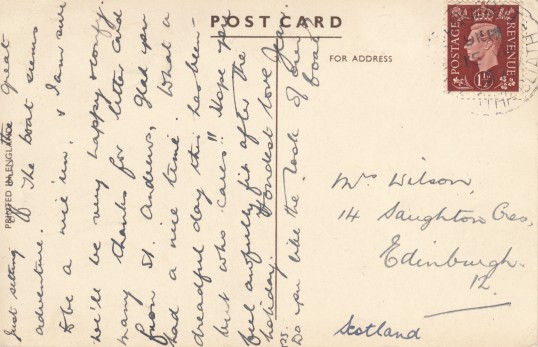 POST CARD
FOR ADDRESS
PRINTED IN ENGLAND
POSTAGE
REVENUE
1½D
Just setting off on the great
adventure. The boat seems
to be a nice 'un. & I am sure
we'll be very happy & comfy.
Many thanks for letter card
from St. Andrews, glad you
had a nice time. What a
dreadful day this has been -
but who cares!! Hope you
feel awfully fit after the
holiday. Fondest love
P.S.
Do you like the look of our
boat
Mrs Wilson,
14 Saughton Cres,
Edinburgh.
12.
Scotland